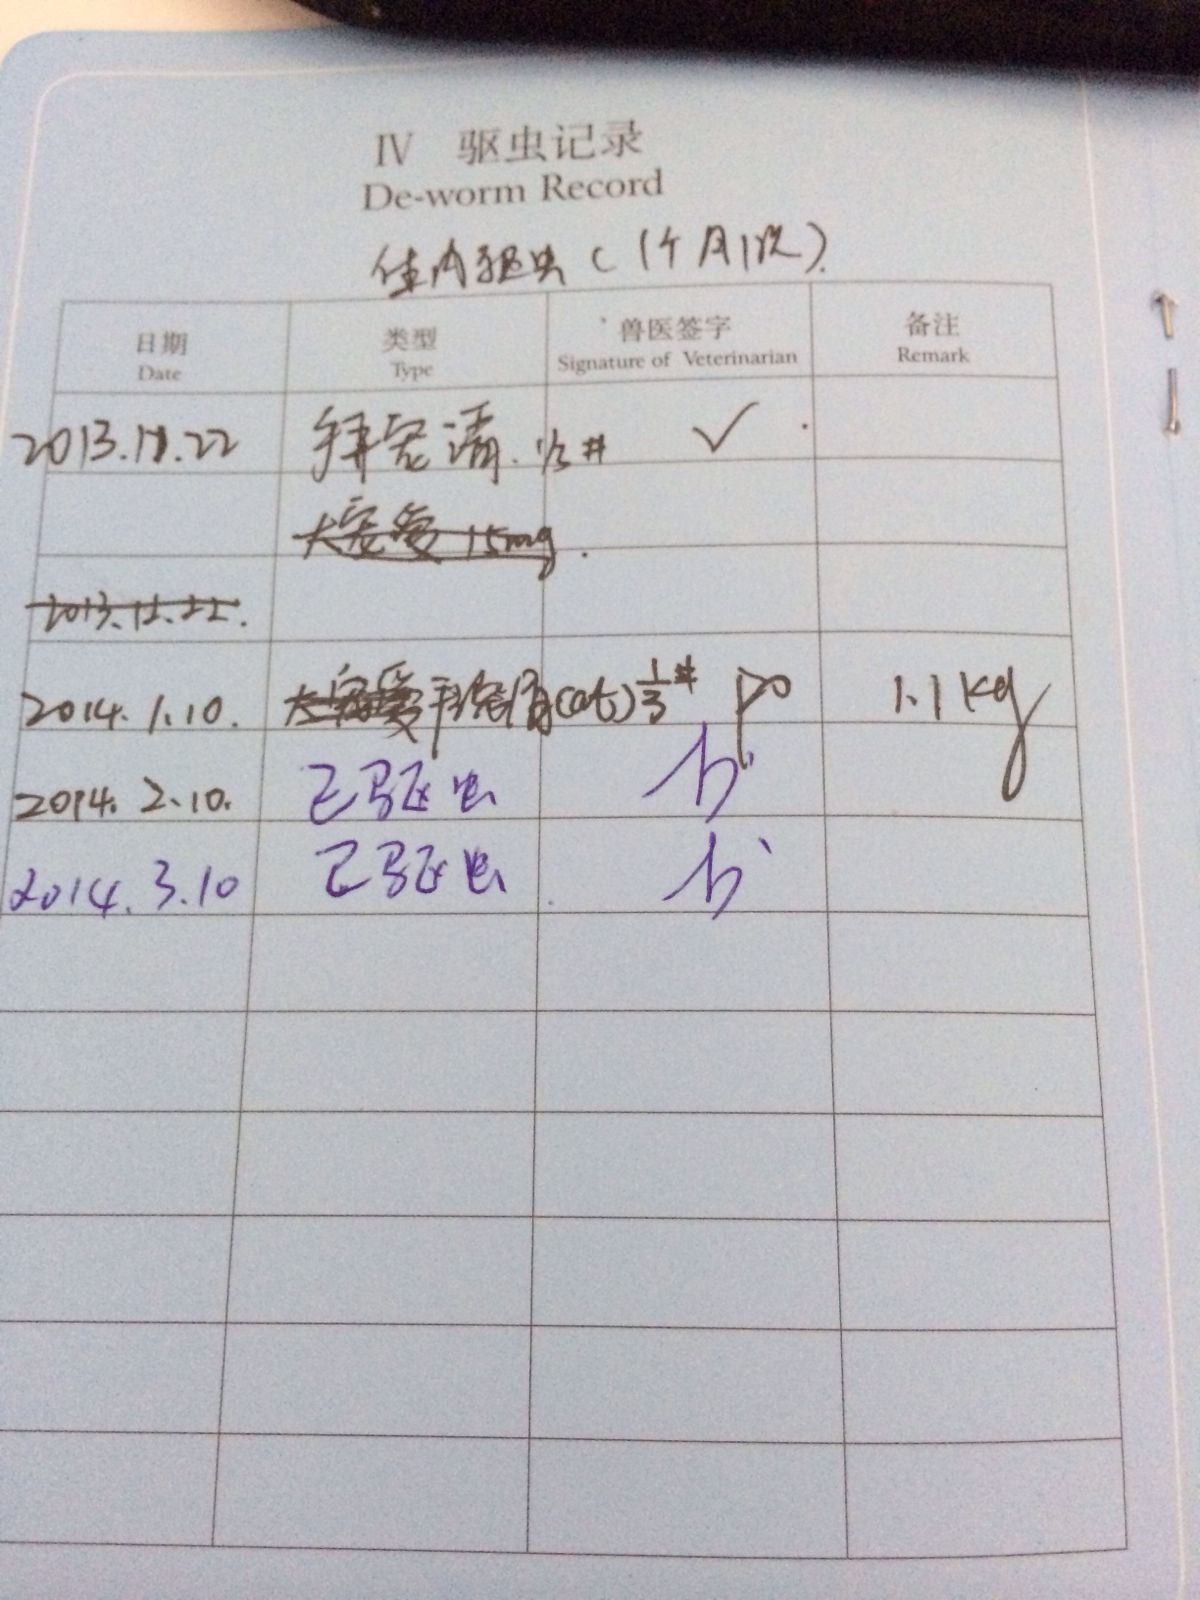 IV 驱虫记录
De-worm Record
体内驱虫 (1个月1次).
日期 类型 兽医签字 备注
Date Type Signature of Veterinarian Remark
2013.11.22 拜宠清. 1/3# ✓
大宠爱 15mg.
2013.12.22.
2014.1.10. 大宠爱 拜宠清(cat) 1/3# po 1.1kg
2014.2.10. 已驱虫
2014.3.10 已驱虫